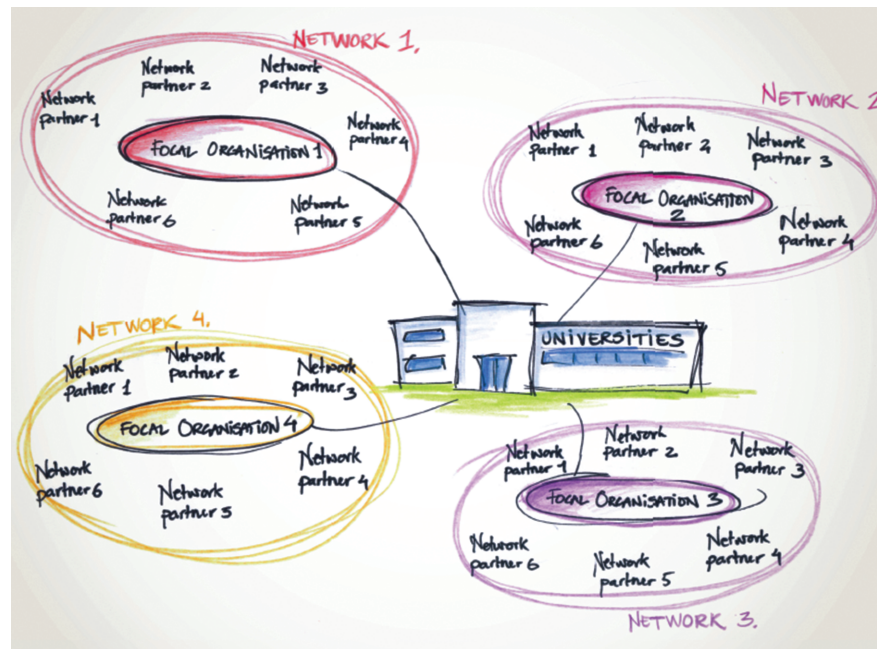 NETWORK 1.
Network
partner 1
Network
partner 2
Network
partner 3
Network
partner 4
FOCAL ORGANISATION 1
Network
partner 6
Network
partner 5
NETWORK 2
Network
partner 1
Network
partner 2
Network
partner 3
FOCAL ORGANISATION
2
Network
partner 6
Network
partner 5
Network
partner 4
UNIVERSITIES
NETWORK 4.
Network
partner 1
Network
partner 2
Network
partner 3
FOCAL ORGANISATION 4
Network
partner 6
Network
partner 5
Network
partner 4
Network
partner 1
Network
partner 2
Network
partner 3
FOCAL ORGANISATION 3
Network
partner 6
Network
partner 5
Network
partner 4
NETWORK 3.